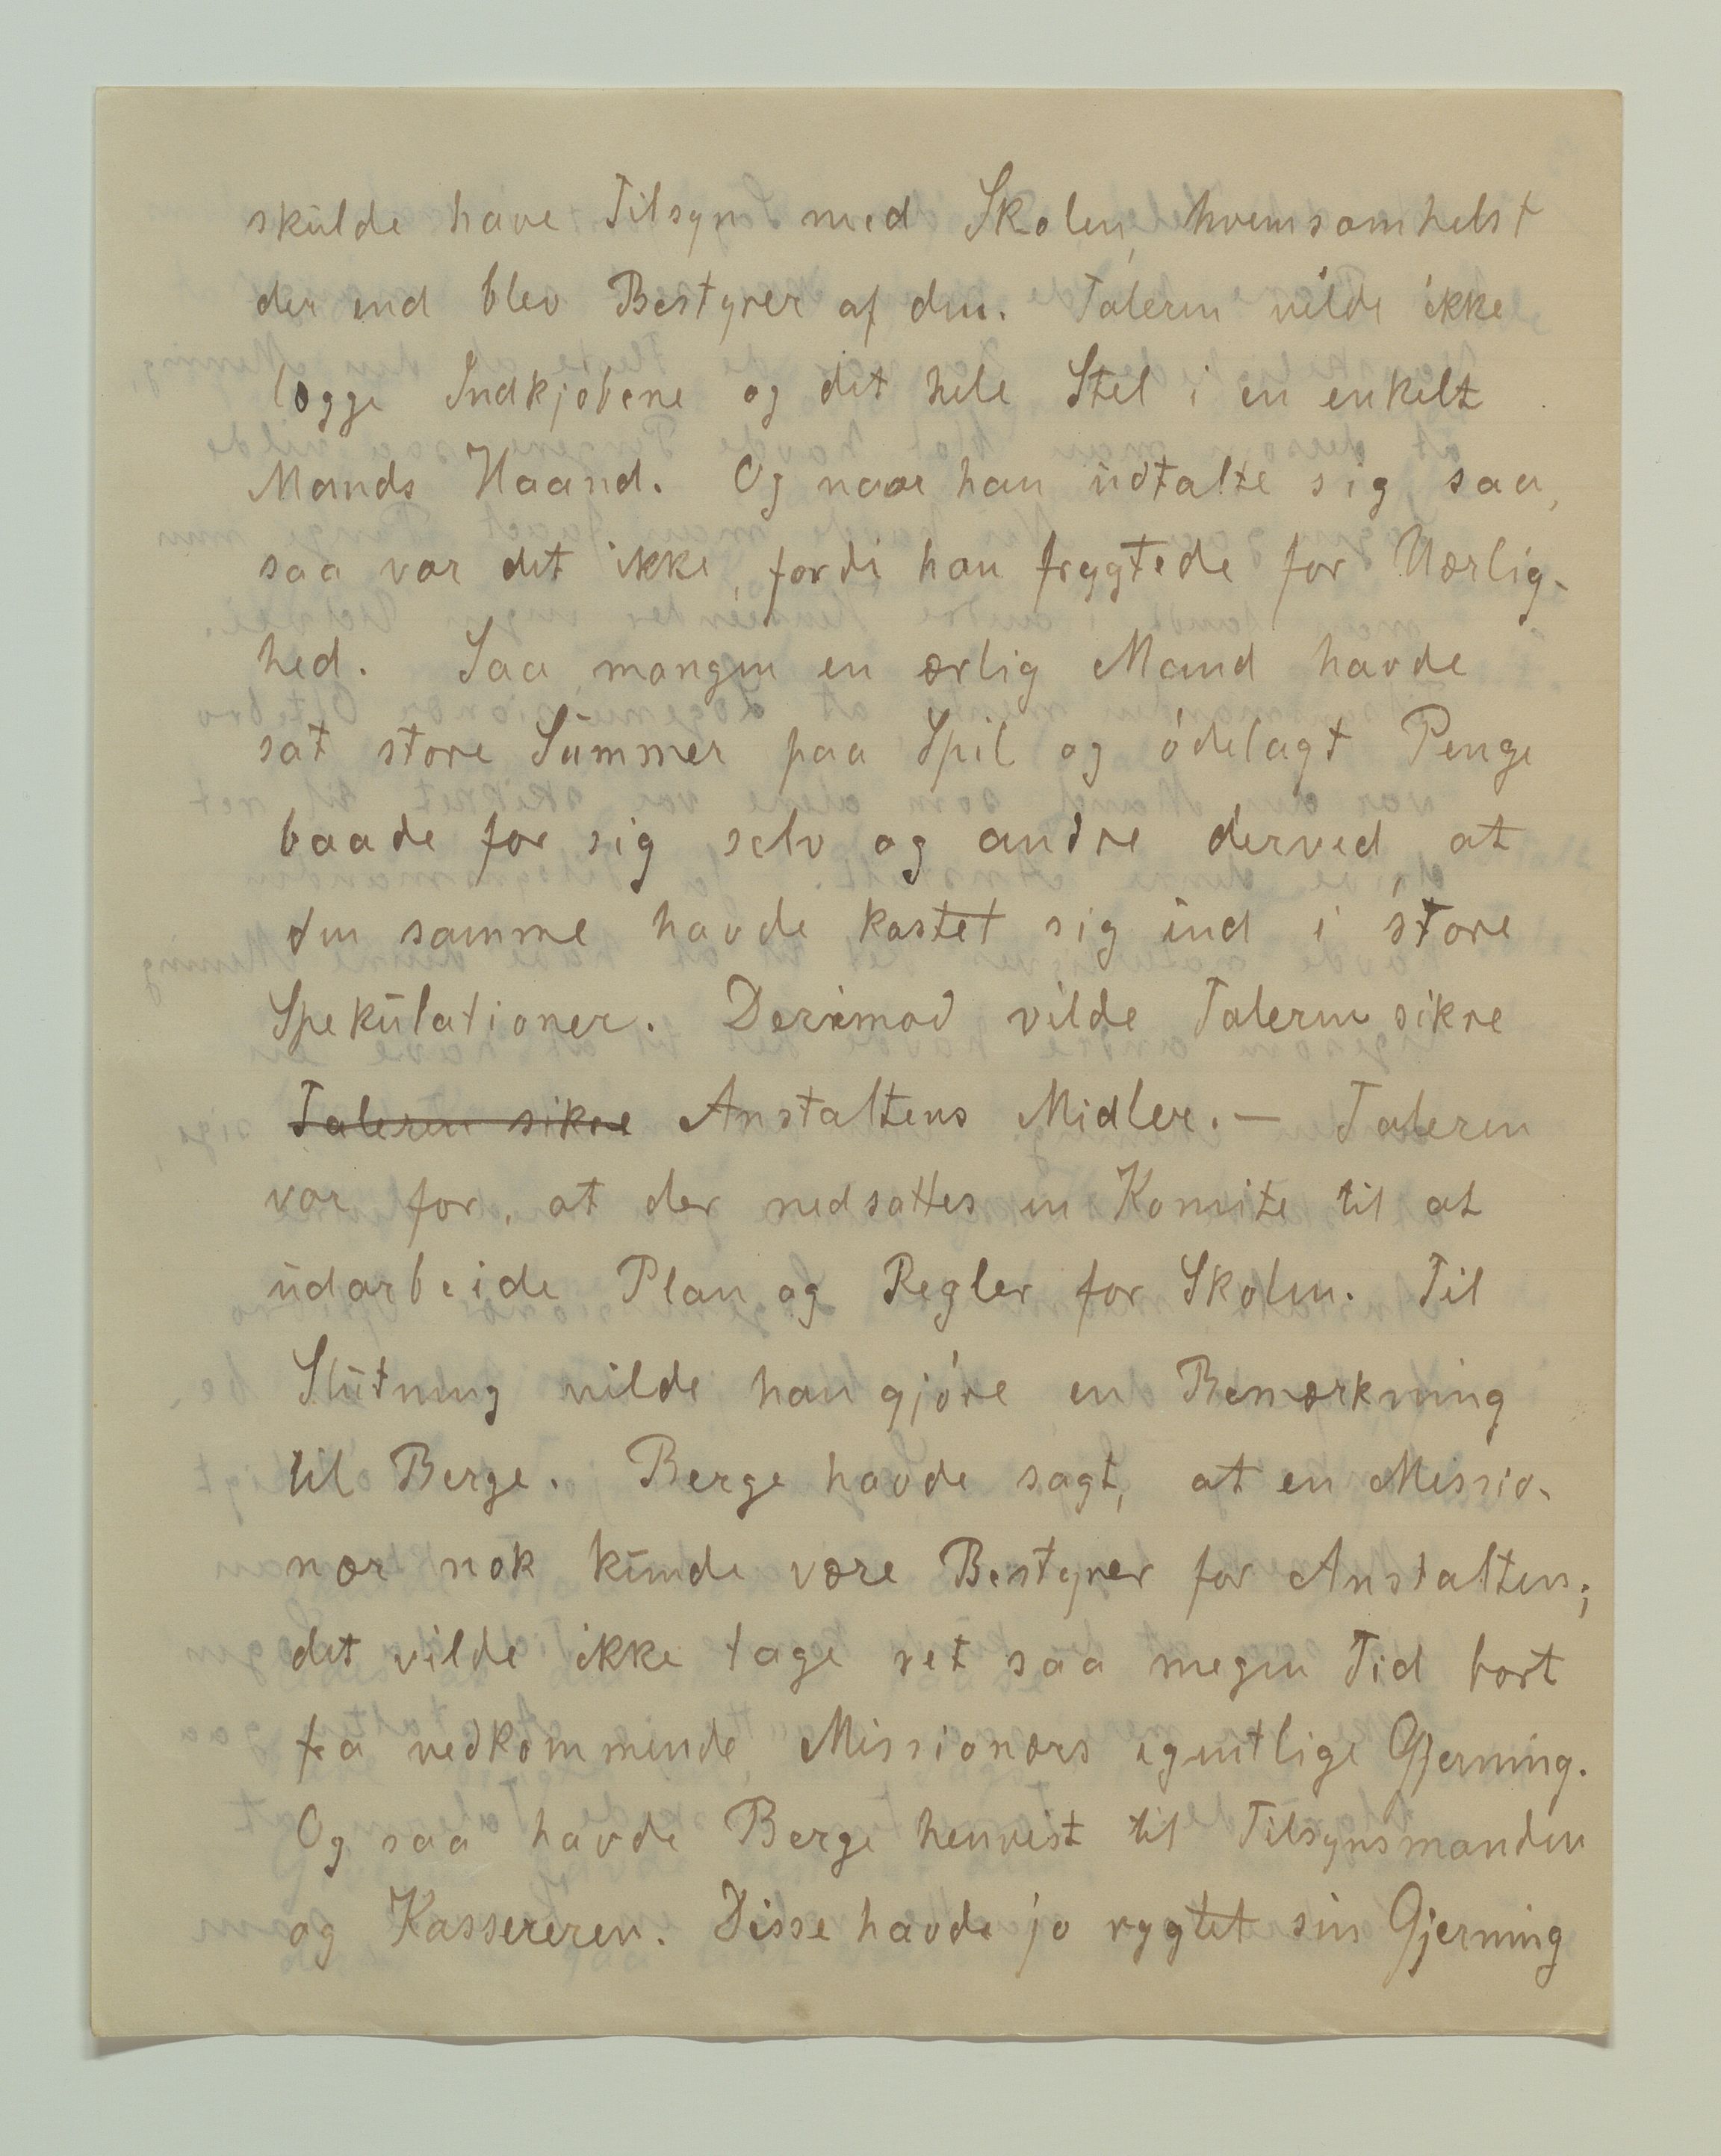 skulde have Tilsyn med Skolen, hvemsomhelst
der end blev Bestyrer af den. Taleren vilde ikke
lægge Indkjøbene og det hele Stel i en enkelt
Mands Haand. Og naar han udtalte sig saa,
saa var det ikke, fordi han frygtede for Uærlig-
hed. Saa mangen en ærlig Mand havde
sat store Summer paa Spil og ødelagt Penge
baade for sig selv og andre derved, at
den samme havde kastet sig ind i store
Spekulationer. Derimod vilde Taleren sikre
Taleren sikre Anstaltens Midler. — Taleren
var for, at der nedsattes en Komite til at
udarbeide Plan og Regler for Skolen. Til
Slutning vilde han gjøre en Bemærkning
til Berge. Berge havde sagt, at en Missio-
nær nok kunde være Bestyrer for Anstalten;
det vilde ikke tage ret saa megen Tid bort
fra vedkommende Missionærs egentlige Gjerning.
Og saa havde Berge henvist til Tilsynsmanden
og Kassereren. Disse havde jo rygtet sin Gjerning